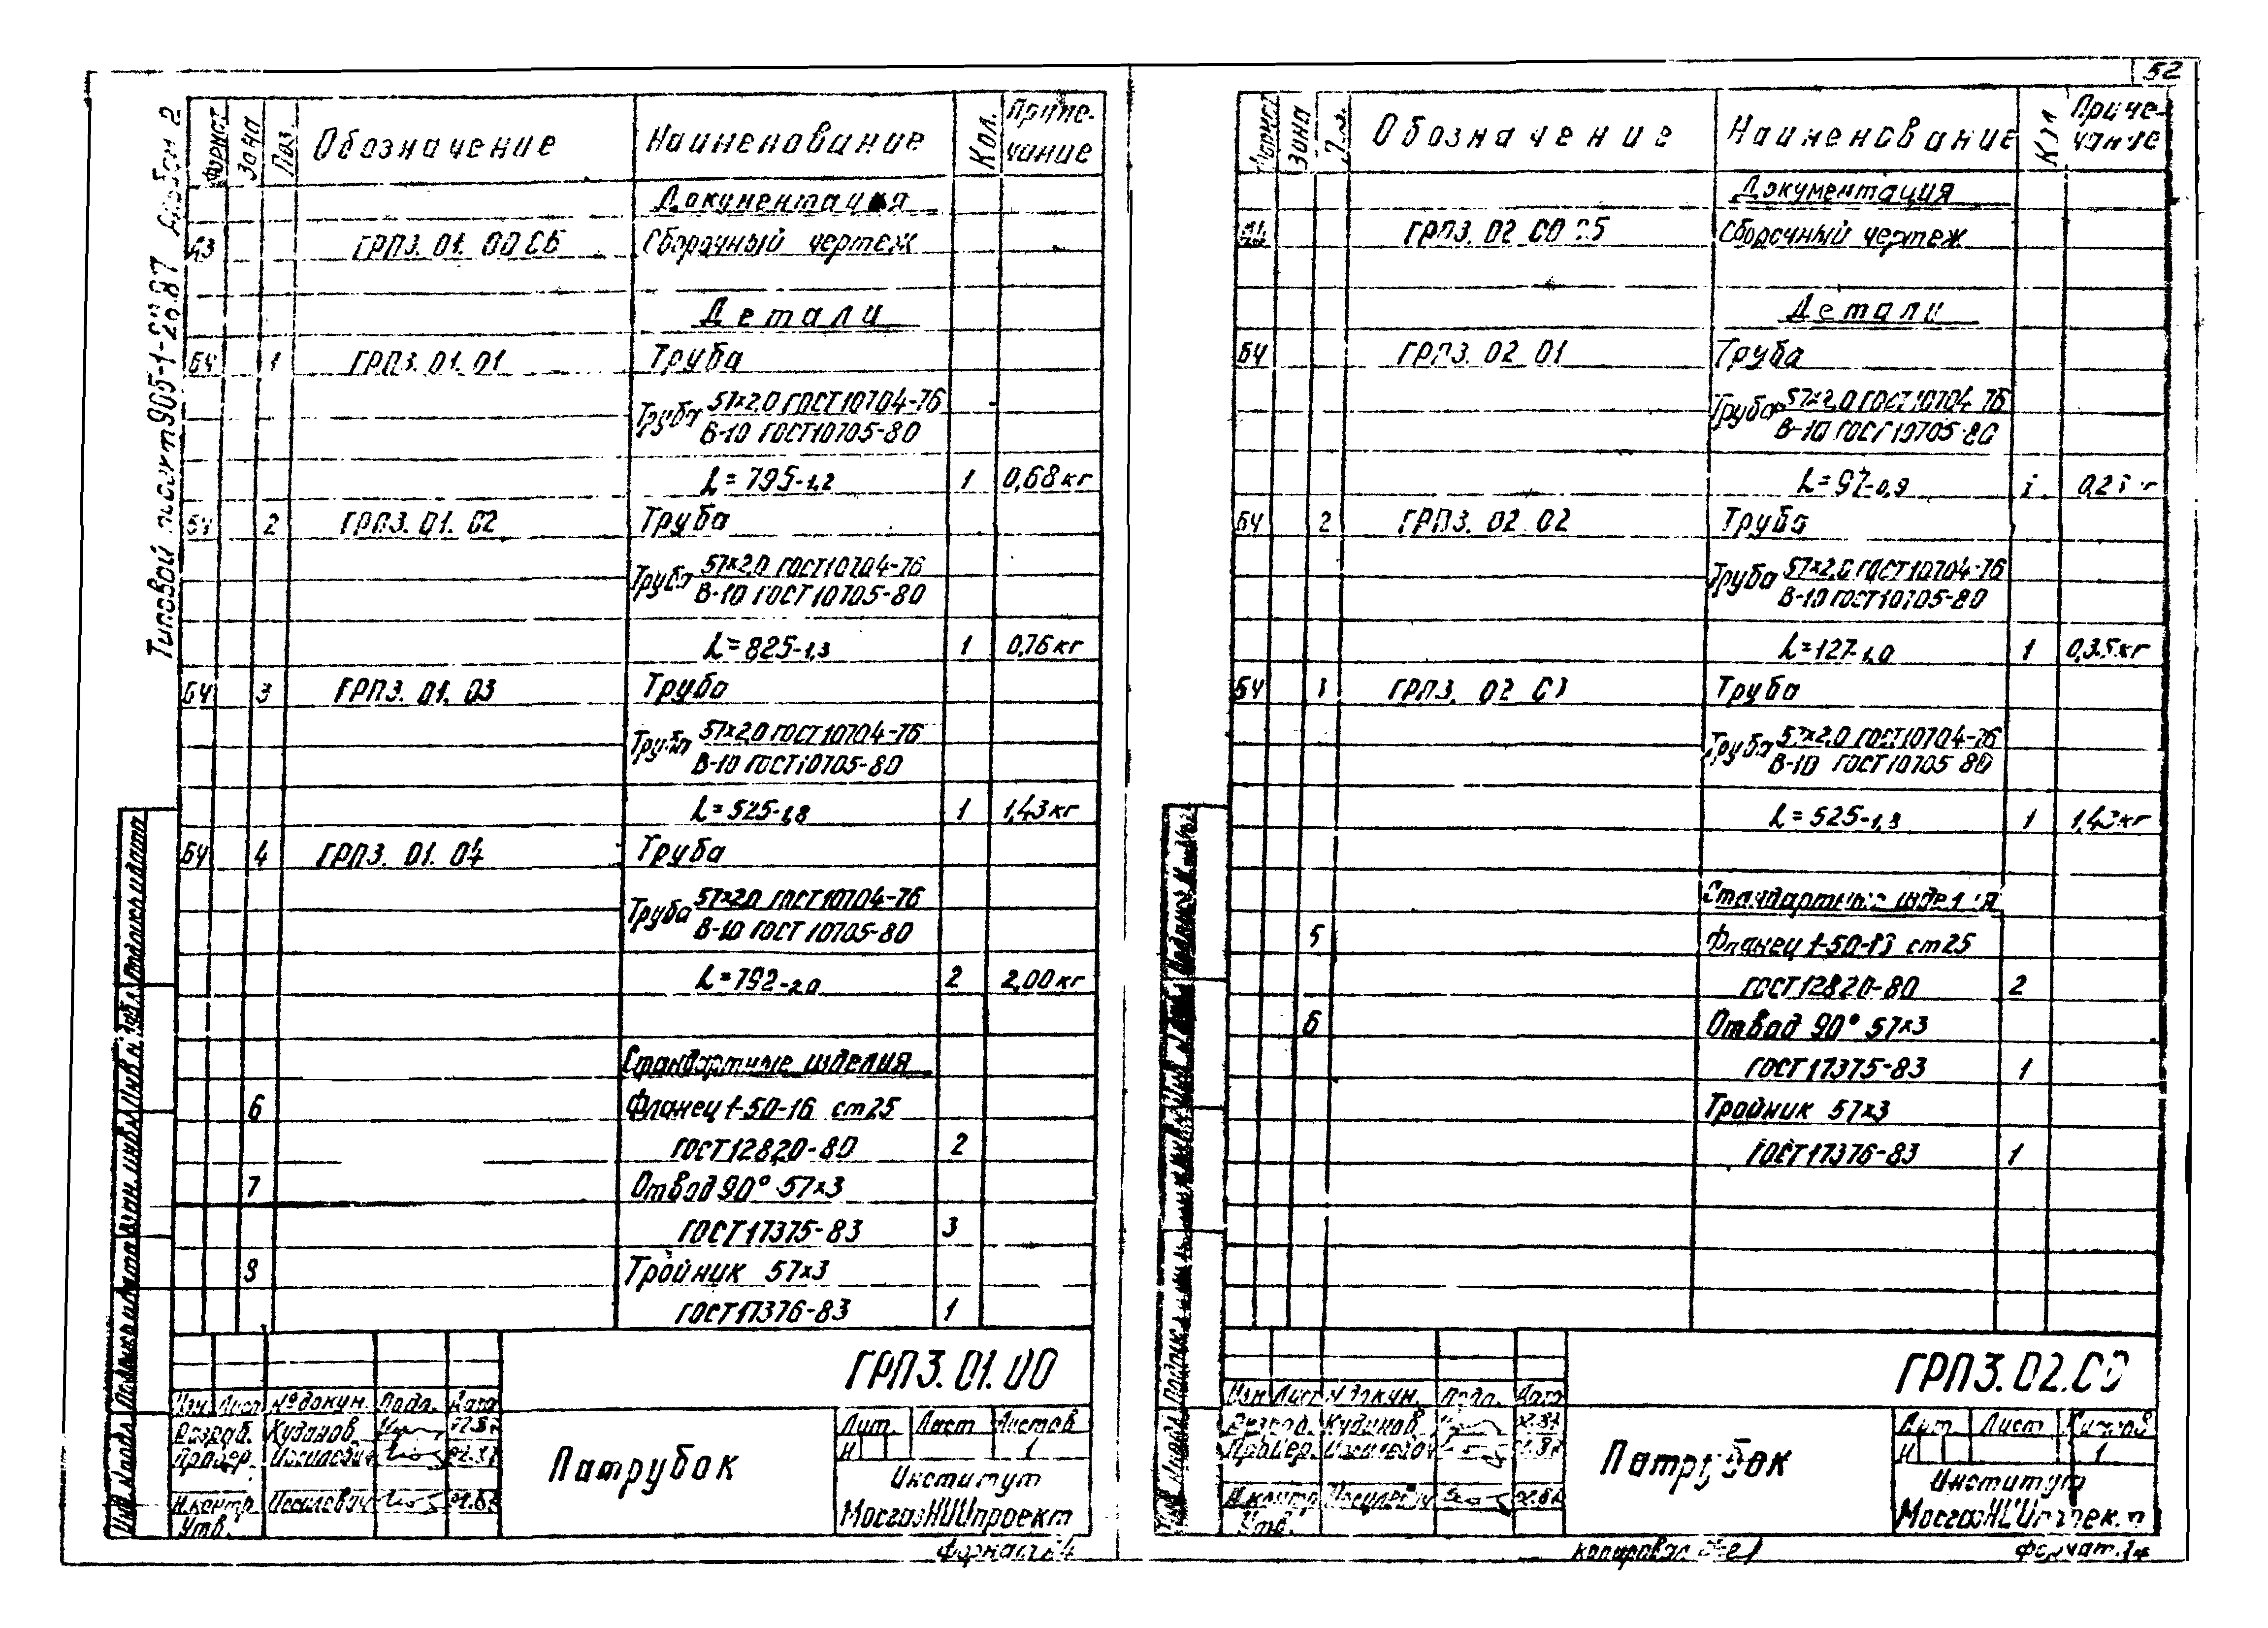 52
Типовой проект 905-1-28.87 Альбом 2
Формат Зона Поз. Обозначение Наименование Кол. Приме-
чание
Документация
А3 ГРП3. 01. 00 СБ Сборочный чертеж
Детали
БЧ 1 ГРП3. 01. 01 Труба
Труба 57×2,0 ГОСТ 10704-76
В-10 ГОСТ 10705-80
L=795-1,2 1 0,68 кг
БЧ 2 ГРП3. 01. 02 Труба
Труба 57×2,0 ГОСТ 10704-76
В-10 ГОСТ 10705-80
L=825-1,3 1 0,76 кг
БЧ 3 ГРП3. 01. 03 Труба
Труба 57×2,0 ГОСТ 10704-76
В-10 ГОСТ 10705-80
L=525-1,8 1 1,43 кг
БЧ 4 ГРП3. 01. 04 Труба
Труба 57×2,0 ГОСТ 10704-76
В-10 ГОСТ 10705-80
L=792-2,0 2 2,00 кг
Стандартные изделия
6 Фланец 1-50-16 ст25
ГОСТ 12820-80 2
7 Отвод 90° 57×3
ГОСТ 17375-83 3
8 Тройник 57×3
ГОСТ 17376-83 1
ГРП3.01.00
Изм. Лист № докум. Подп. Дата
Разраб. Кудинов
Провер.
Н.контр.
Утв.
Патрубок
Лит. Лист Листов
И 1
Институт
МосгазНИИпроект
Формат А4
Формат Зона Поз. Обозначение Наименование Кол Приме-
чание
Документация
ГРП3. 02 00 СБ Сборочный чертеж
Детали
БЧ ГРП3. 02 01 Труба
Труба 57×2,0 ГОСТ 10704-76
В-10 ГОСТ 10705-80
L=97-0,9 1
БЧ 2 ГРП3. 02 02 Труба
Труба 57×2,0 ГОСТ 10704-76
В-10 ГОСТ 10705-80
L=127-1,0 1 0,35 кг
БЧ 3 ГРП3. 02 03 Труба
Труба 57×2,0 ГОСТ 10704-76
В-10 ГОСТ 10705-80
L=525-1,3 1 1,43 кг
Стандартные изделия
5 Фланец 1-50-16 ст25
ГОСТ 12820-80 2
6 Отвод 90° 57×3
ГОСТ 17375-83 1
Тройник 57×3
ГОСТ 17376-83 1
ГРП3.02.00
Изм Лист № докум. Подп. Дата
Разраб. Кудинов
Провер.
Н.контр
Утв.
Патрубок
Лит. Лист Листов
И 1
Институт
МосгазНИИпроект
Копировал Формат А4